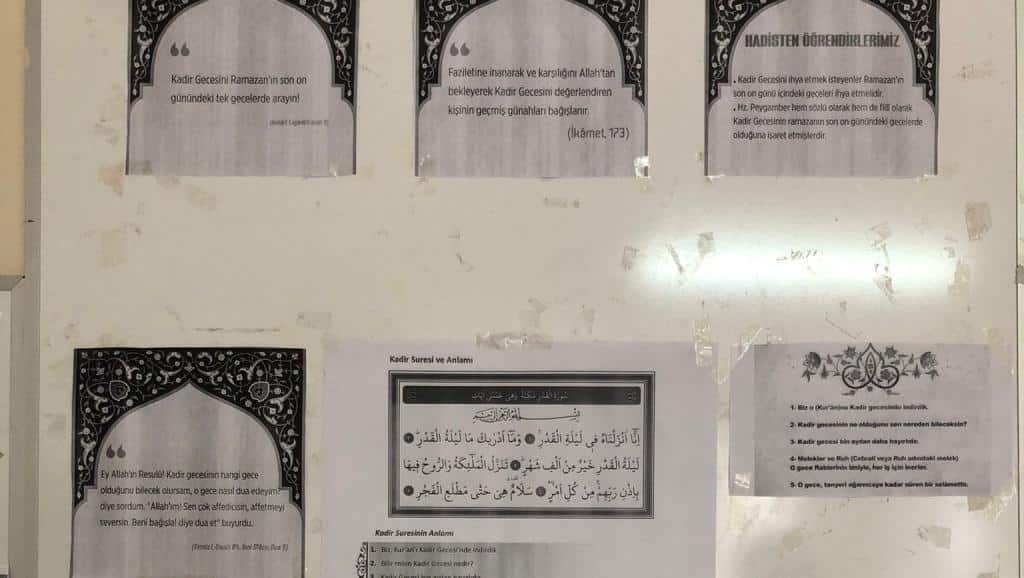 Kadir Gecesini Ramazan'ın son on
günündeki tek gecelerde arayın!
Faziletine inanarak ve karşılığını Allah'tan
bekleyerek Kadir Gecesini değerlendiren
kişinin geçmiş günahları bağışlanır.
(İkâmet, 173)
HADİSTEN ÖĞRENDİKLERİMİZ
. Kadir Gecesini ihya etmek isteyenler Ramazan'ın
son on günü içindeki geceleri ihya etmelidir.
. Hz. Peygamber hem sözlü olarak hem de fiili olarak
Kadir Gecesinin ramazanın son on günündeki gecelerde
olduğuna işaret etmişlerdir.
Ey Allah'ın Resulü! Kadir gecesinin hangi gece
olduğunu bilecek olursam, o gece nasıl dua edeyim?
diye sordum. "Allah'ım! Sen çok affedicisin, affetmeyi
seversin. Beni bağışla! diye dua et" buyurdu.
Kadir Suresi ve Anlamı
سُورَةُ الْقَدْرِ مَكِّيَّةٌ وَهِيَ خَمْسُ اٰيَاتٍ
بِسْمِ اللّٰهِ الرَّحْمٰنِ الرَّحِيمِ
اِنَّٓا اَنْزَلْنَاهُ فِي لَيْلَةِ الْقَدْرِ وَمَٓا اَدْرٰيكَ مَا لَيْلَةُ الْقَدْرِ
لَيْلَةُ الْقَدْرِ خَيْرٌ مِنْ اَلْفِ شَهْرٍ تَنَزَّلُ الْمَلٰٓئِكَةُ وَالرُّوحُ فِيهَا
بِاِذْنِ رَبِّهِمْ مِنْ كُلِّ اَمْرٍ سَلَامٌ هِيَ حَتّٰى مَطْلَعِ الْفَجْرِ
Kadir Suresinin Anlamı
1. Biz, Kur'an'ı Kadir Gecesi'nde indirdik
2. Bilir misin Kadir Gecesi nedir?
1- Biz o (Kur'ân)ını Kadir gecesinde indirdik.
2- Kadir gecesinin ne olduğunu sen nereden bileceksin?
3- Kadir gecesi bin aydan daha hayırlıdır.
4- Melekler ve Ruh (Cebrail veya Ruh adındaki melek)
O gece Rablerinin izniyle, her iş için inerler.
5- O gece, tanyeri ağarıncaya kadar süren bir selâmettir.